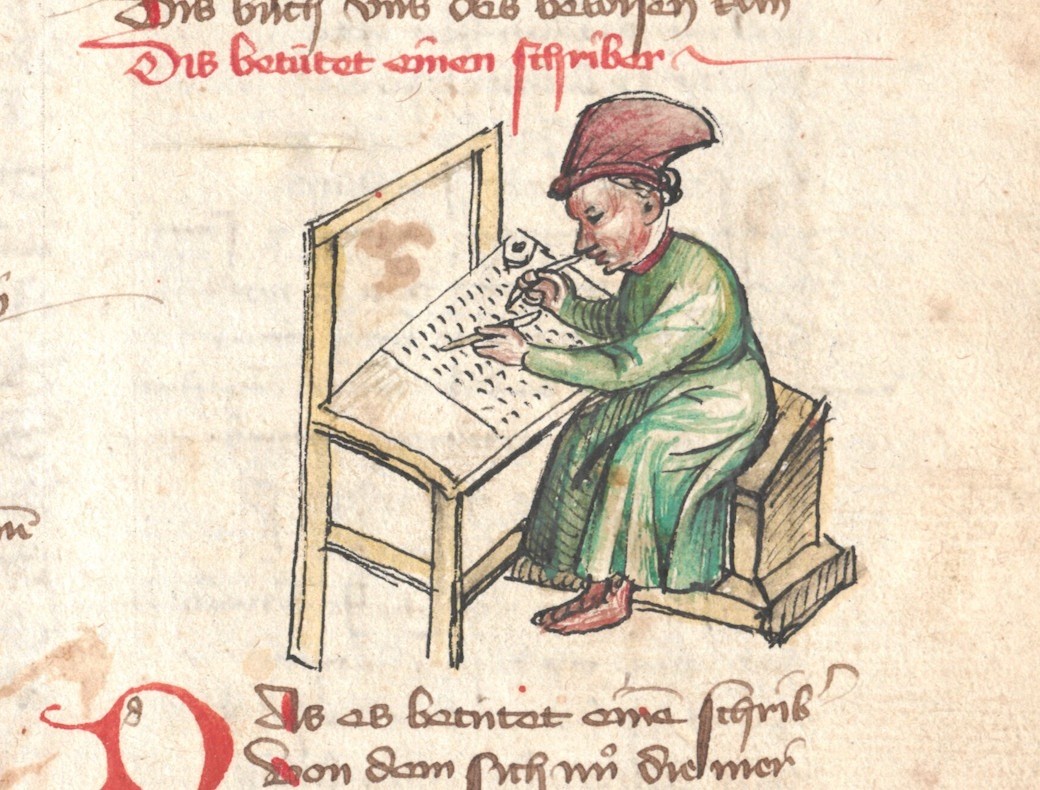 Dis bůch vns des bewisen kan
Dis betütet einen schriber
d
Das es betütet eine͞ schrib͛
Von dem sich nů die mer